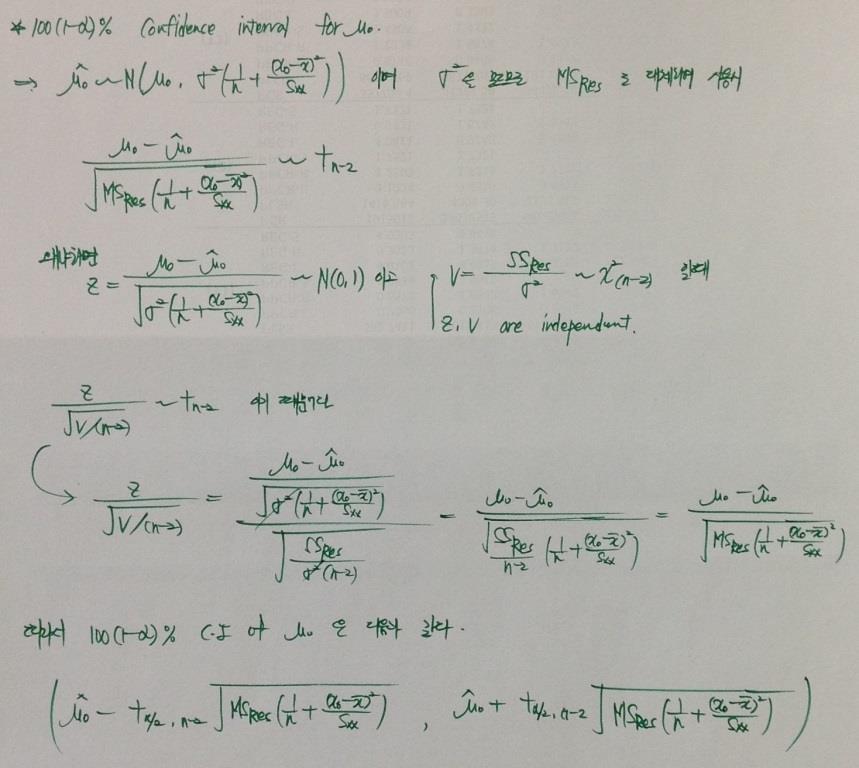 * 100(1-α)% Confidence interval for μ₀.
⇒ μ̂₀ ~ N(μ₀, σ²(1/n + (x₀-x̄)²/Sxx)) 이며 σ²을 모르므로 MS_Res로 대체하여 사용시
(μ₀ - μ̂₀) / √(MS_Res(1/n + (x₀-x̄)²/Sxx)) ~ t_{n-2}
왜냐하면 Z = (μ₀ - μ̂₀) / √(σ²(1/n + (x₀-x̄)²/Sxx)) ~ N(0,1) 이고 V = SS_Res/σ² ~ χ²(n-2) 일때
Z, V are independent.
Z / √(V/(n-2)) ~ t_{n-2} 이기 때문이다
Z / √(V/(n-2)) = [(μ₀ - μ̂₀) / √(σ²(1/n + (x₀-x̄)²/Sxx))] / √(SS_Res/(σ²(n-2))) = (μ₀ - μ̂₀) / √((SS_Res/(n-2))(1/n + (x₀-x̄)²/Sxx)) = (μ₀ - μ̂₀) / √(MS_Res(1/n + (x₀-x̄)²/Sxx))
따라서 100(1-α)% C.I of μ₀ 은 다음과 같다.
(μ̂₀ - t_{α/2, n-2} √(MS_Res(1/n + (x₀-x̄)²/Sxx)), μ̂₀ + t_{α/2, n-2} √(MS_Res(1/n + (x₀-x̄)²/Sxx)))